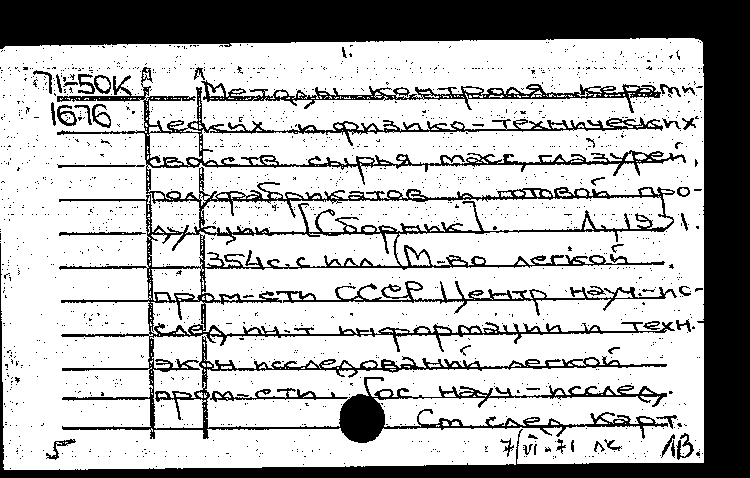 71-50К Методы контроля керами-
1676 ческих и физико-технических
свойств сырья, масс, глазурей,
полуфабрикатов и готовой про-
дукции [Сборник]. Л., 1971.
354с. с илл. (М-во легкой
пром-сти СССР Центр науч.-ис-
след. ин-т информации и техн.-
экон исследований легкой
пром-сти. Гос. науч.-исслед.
См. след. карт.
5 7/VI-71 ЛВ.